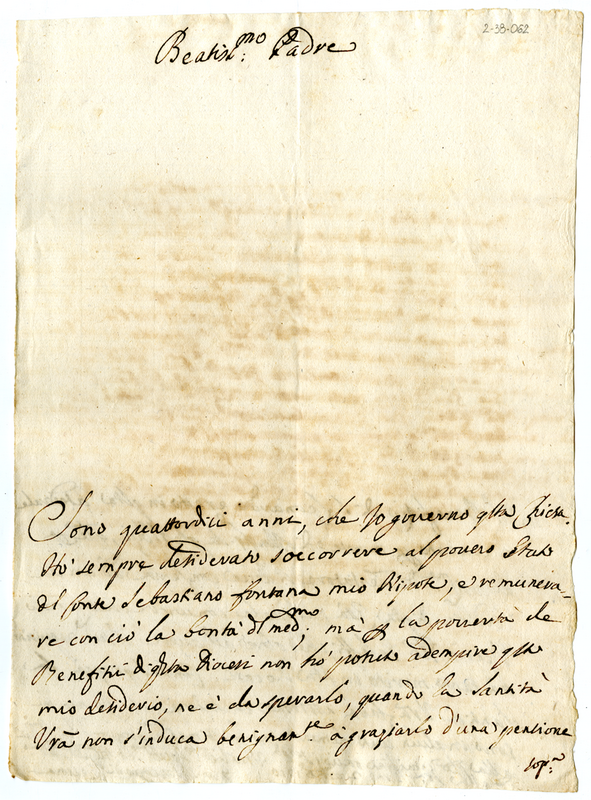 2-38-062
Beatis.mo Padre
Sono quattordici anni, che Io governo q.sta Chiesa.
Hò sempre desiderato soccorrere al povero Stato
del Conte Sebastiano fontana mio Nipote, e remunera-
re con ciò la bontà del med.mo; mà p la povertà de
Benefitii di q.sta Diocesi non hò potuto adempire q.sto
mio desiderio, ne è da sperarlo, quando la Santità
Vrã non s'induca benignam.te à graziarlo d'una pensione
sop.a